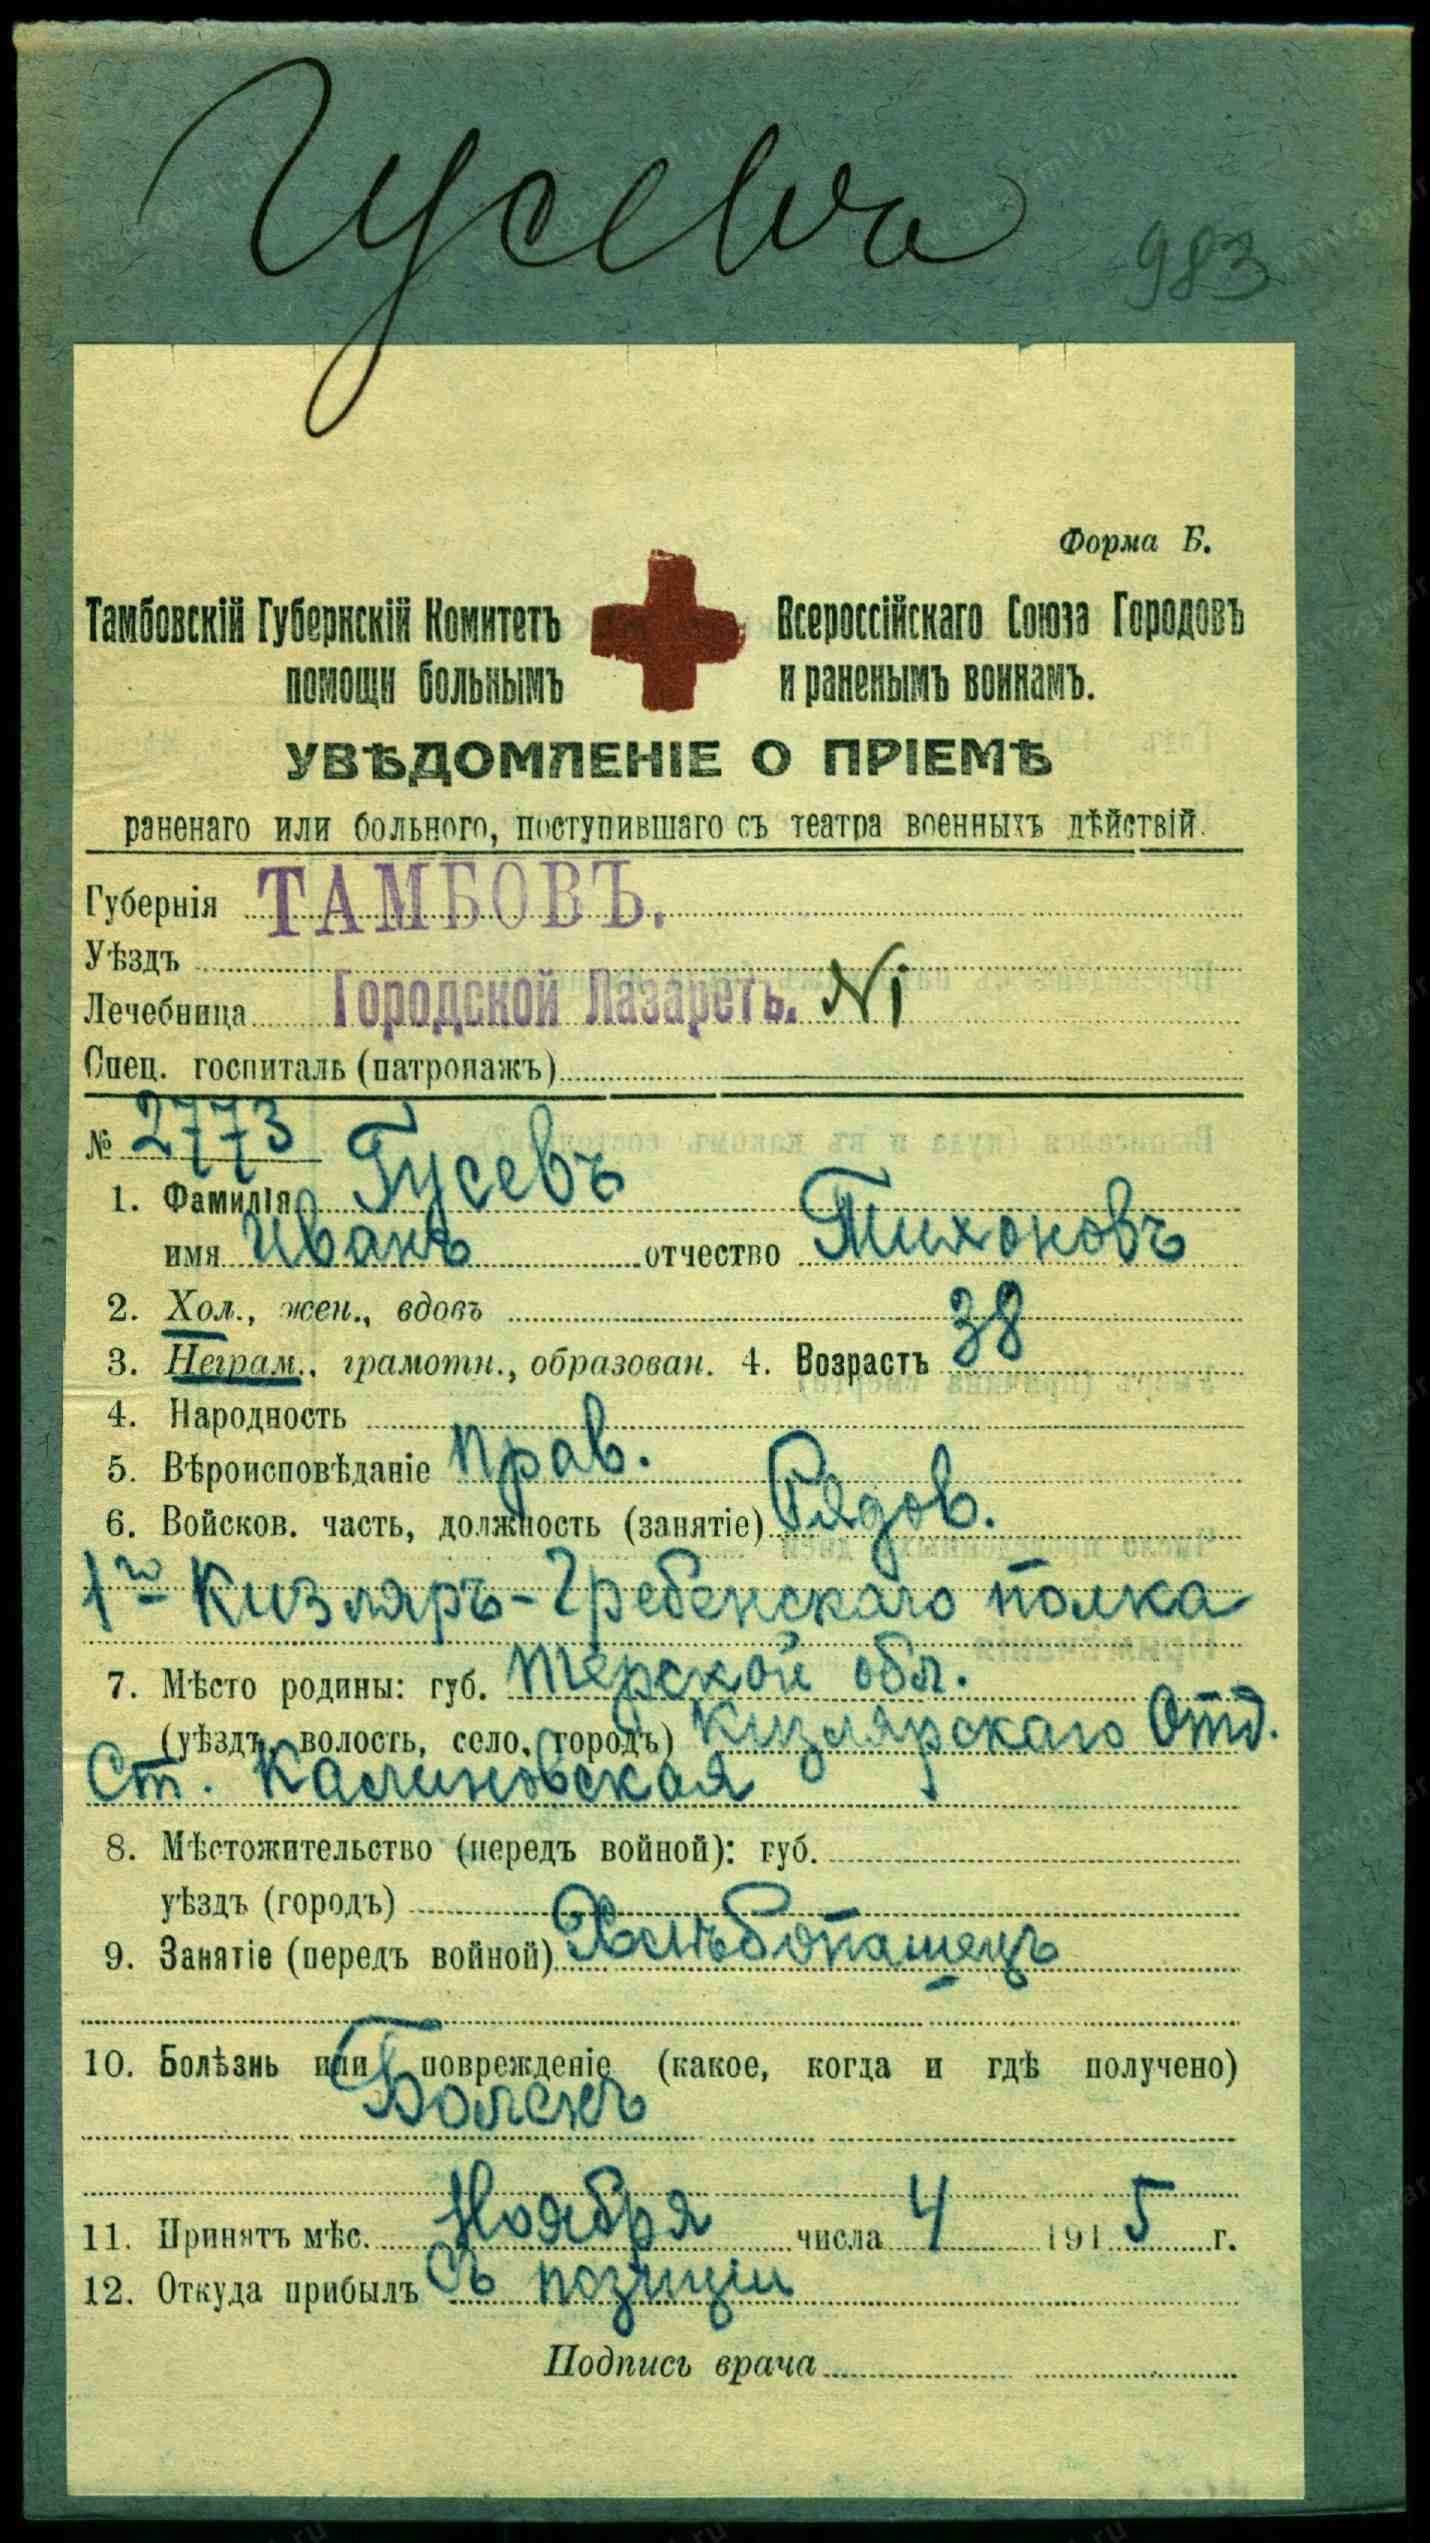 Гусевъ
983
Форма Б.
Тамбовскій Губернскій Комитетъ Всероссійскаго Союза Городовъ
помощи больнымъ и раненымъ воинамъ.
УВѢДОМЛЕНІЕ О ПРІЕМѢ
раненаго или больного, поступившаго съ театра военныхъ дѣйствій.
Губернія ТАМБОВЪ.
Уѣздъ
Лечебница Городской Лазаретъ. №1
Спец. госпиталь (патронажъ)
№ 2773
1. Фамилія Гусевъ
имя Иванъ отчество Тихоновъ
2. Хол., жен., вдовъ
3. Неграм., грамотн., образован. 4. Возрастъ 38
4. Народность
5. Вѣроисповѣданіе прав.
6. Войсков. часть, должность (занятіе) Рядов.
1го Кизляръ-Гребенскаго полка
7. Мѣсто родины: губ. Терской обл.
(уѣздъ, волость, село, городъ) Кизлярскаго Отд.
Ст. Калиновская
8. Мѣстожительство (передъ войной): губ.
уѣздъ (городъ)
9. Занятіе (передъ войной) Хлѣбопашецъ
10. Болѣзнь или поврежденіе (какое, когда и гдѣ получено)
Боленъ
11. Принятъ мѣс. Ноября числа 4 1915 г.
12. Откуда прибылъ Съ позиціи
Подпись врача